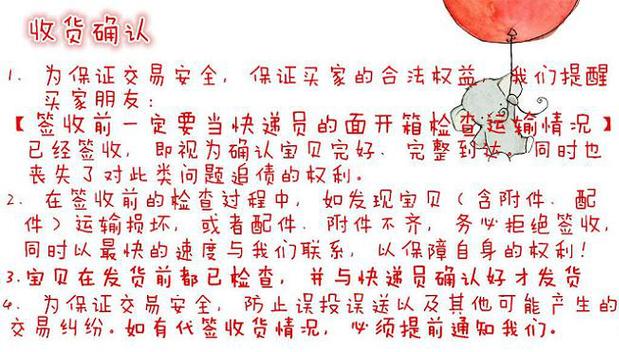 收货确认
1. 为保证交易安全，保证买家的合法权益，我们提醒
买家朋友：
【签收前一定要当快递员的面开箱检查运输情况】
已经签收，即视为确认宝贝完好．完整到达，同时也
丧失了对此类问题追债的权利。
2. 在签收前的检查过程中，如发现宝贝（含附件．配
件）运输损坏，或者配件．附件不齐，务必拒绝签收，
同时以最快的速度与我们联系，以保障自身的权利！
3.宝贝在发货前都已检查，并与快递员确认好才发货
4. 为保证交易安全，防止误投误送以及其他可能产生的
交易纠纷。如有代签收货情况，必须提前通知我们。